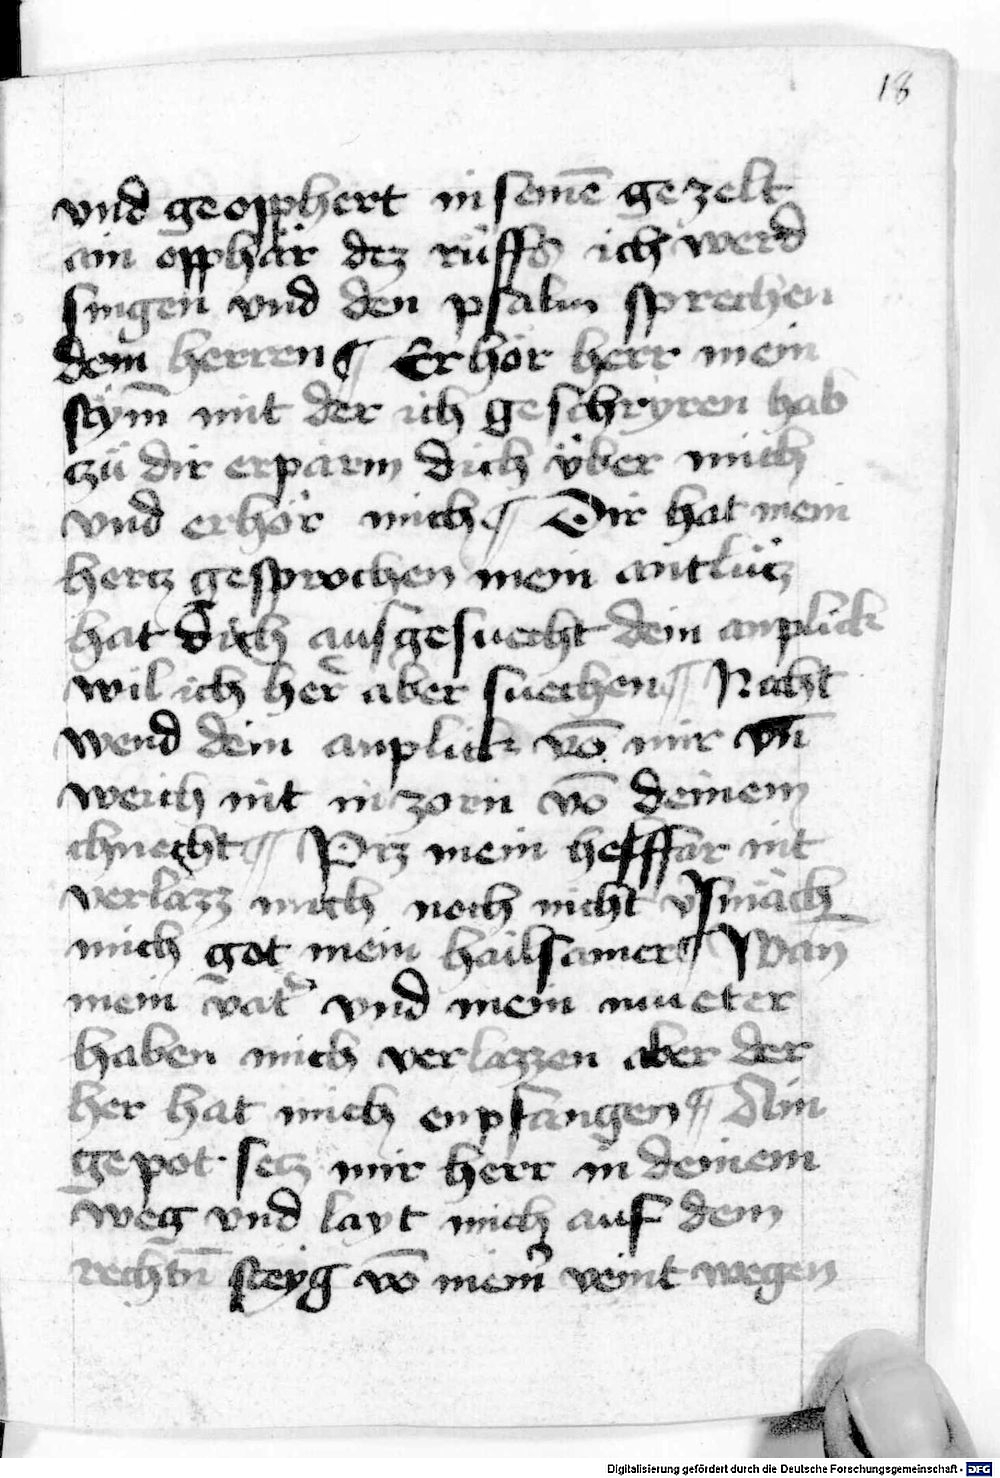 18
vnd geopphert in seinē gezelt
ain opphär dez rüffs ich werd
singen vnd den psalm sprechen
dem herren ¶ Erhör herr mein
stym̄ mit der ich geschryren hab
zü dir erparm dich über mich
vnd erhör mich ¶ Dir hat mein
hertz gesprochen mein antlütz
hat dich ausgesuecht dein anplick
wil ich her aber suechen ¶ Nicht
wend dein anplick vō mir vn̄
weich nit in zorn vō deinem
chnecht ¶ Piz mein helffar nit
verlazz mich noch nicht v̄smäch
mich got mein hailsamer ¶ Wan̄
mein vat̄ vnd mein mueter
haben mich verlazzen aber der
her hat mich enpfangen ¶ Ain
gepot setz mir herr in deinem
weg vnd layt mich auf dem
rechtn̄ steyg vō mein̄ veint wegen
Digitalisierung gefördert durch die Deutsche Forschungsgemeinschaft - DFG